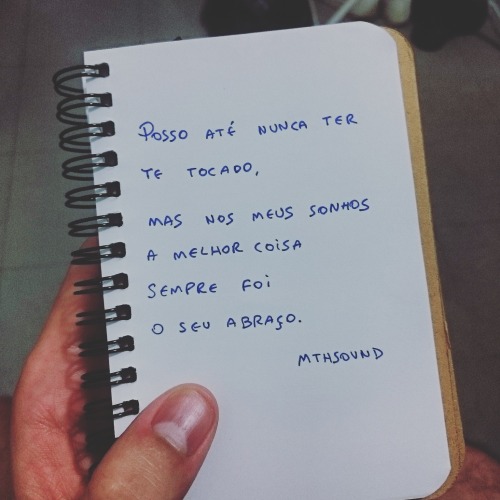 POSSO ATÉ NUNCA TER
TE TOCADO,
MAS NOS MEUS SONHOS
A MELHOR COiSA
SEMPRE FOi
O SEU ABRAÇO.
MTHSOUND